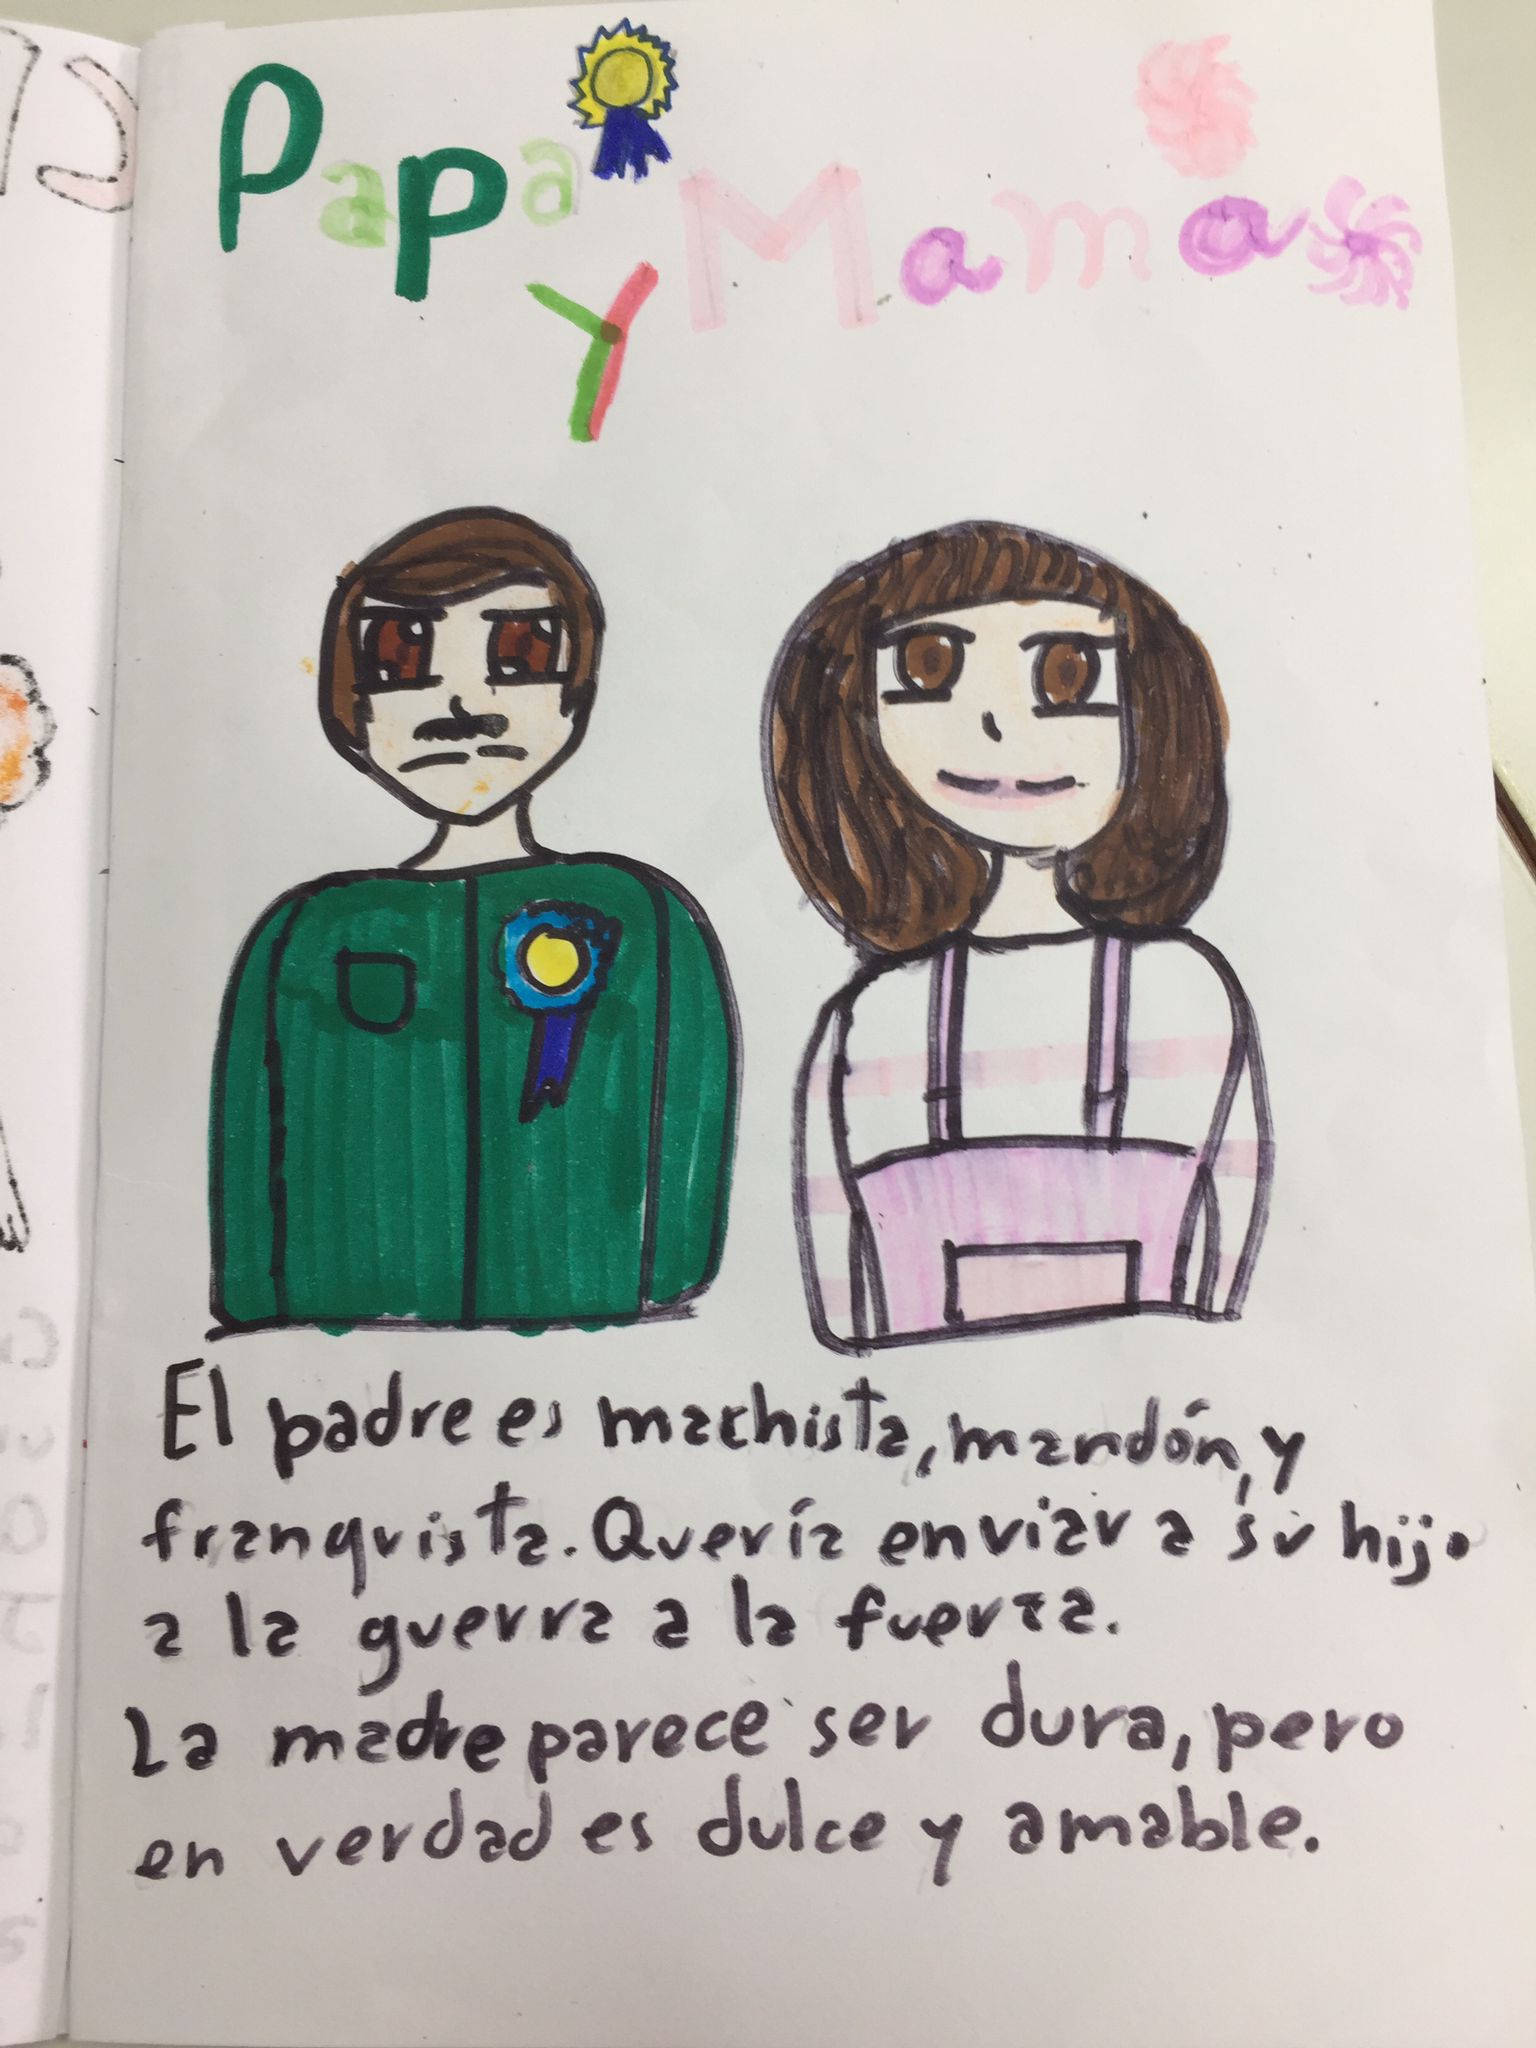 Papa
y Mama
El padre es machista, mandón, y
franquista. Quería enviar a su hijo
a la guerra a la fuerza.
La madre parece ser dura, pero
en verdad es dulce y amable.